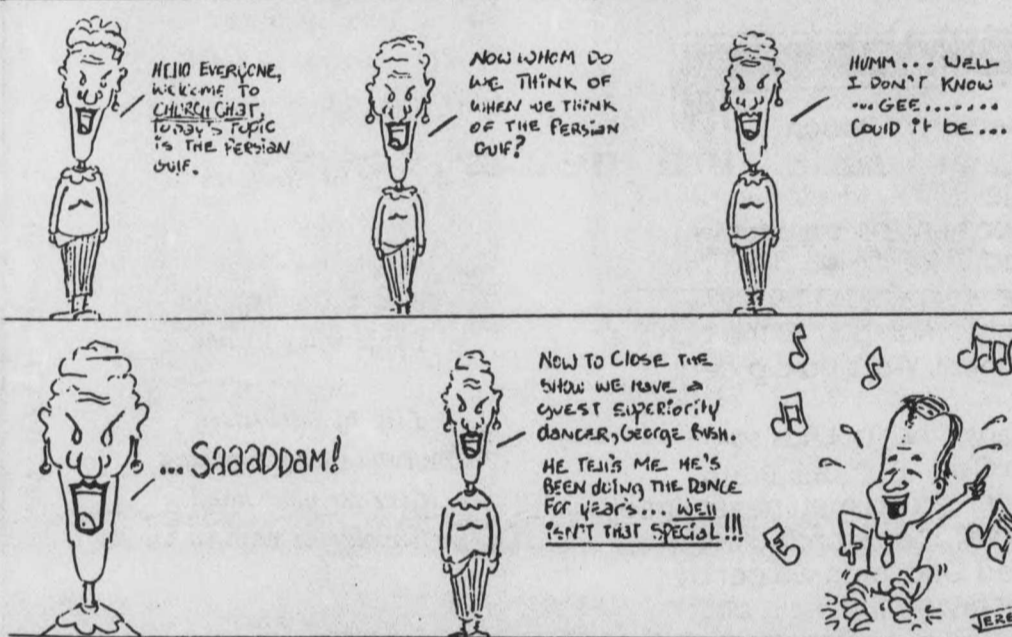 HELLO EVERYONE,
WELCOME TO
CHURCH CHAT.
TODAY'S TOPIC
IS THE PERSIAN
GULF.
NOW WHOM DO
WE THINK OF
WHEN WE THINK
OF THE PERSIAN
GULF?
HUMM... WELL
I DON'T KNOW
...GEE.......
COULD IT BE...
...SAAADDAM!
NOW TO CLOSE THE
SHOW WE HAVE A
GUEST SUPERIORITY
DANCER, GEORGE BUSH.
HE TELLS ME HE'S
BEEN DOING THE DANCE
FOR YEARS... WELL
ISN'T THAT SPECIAL!!!